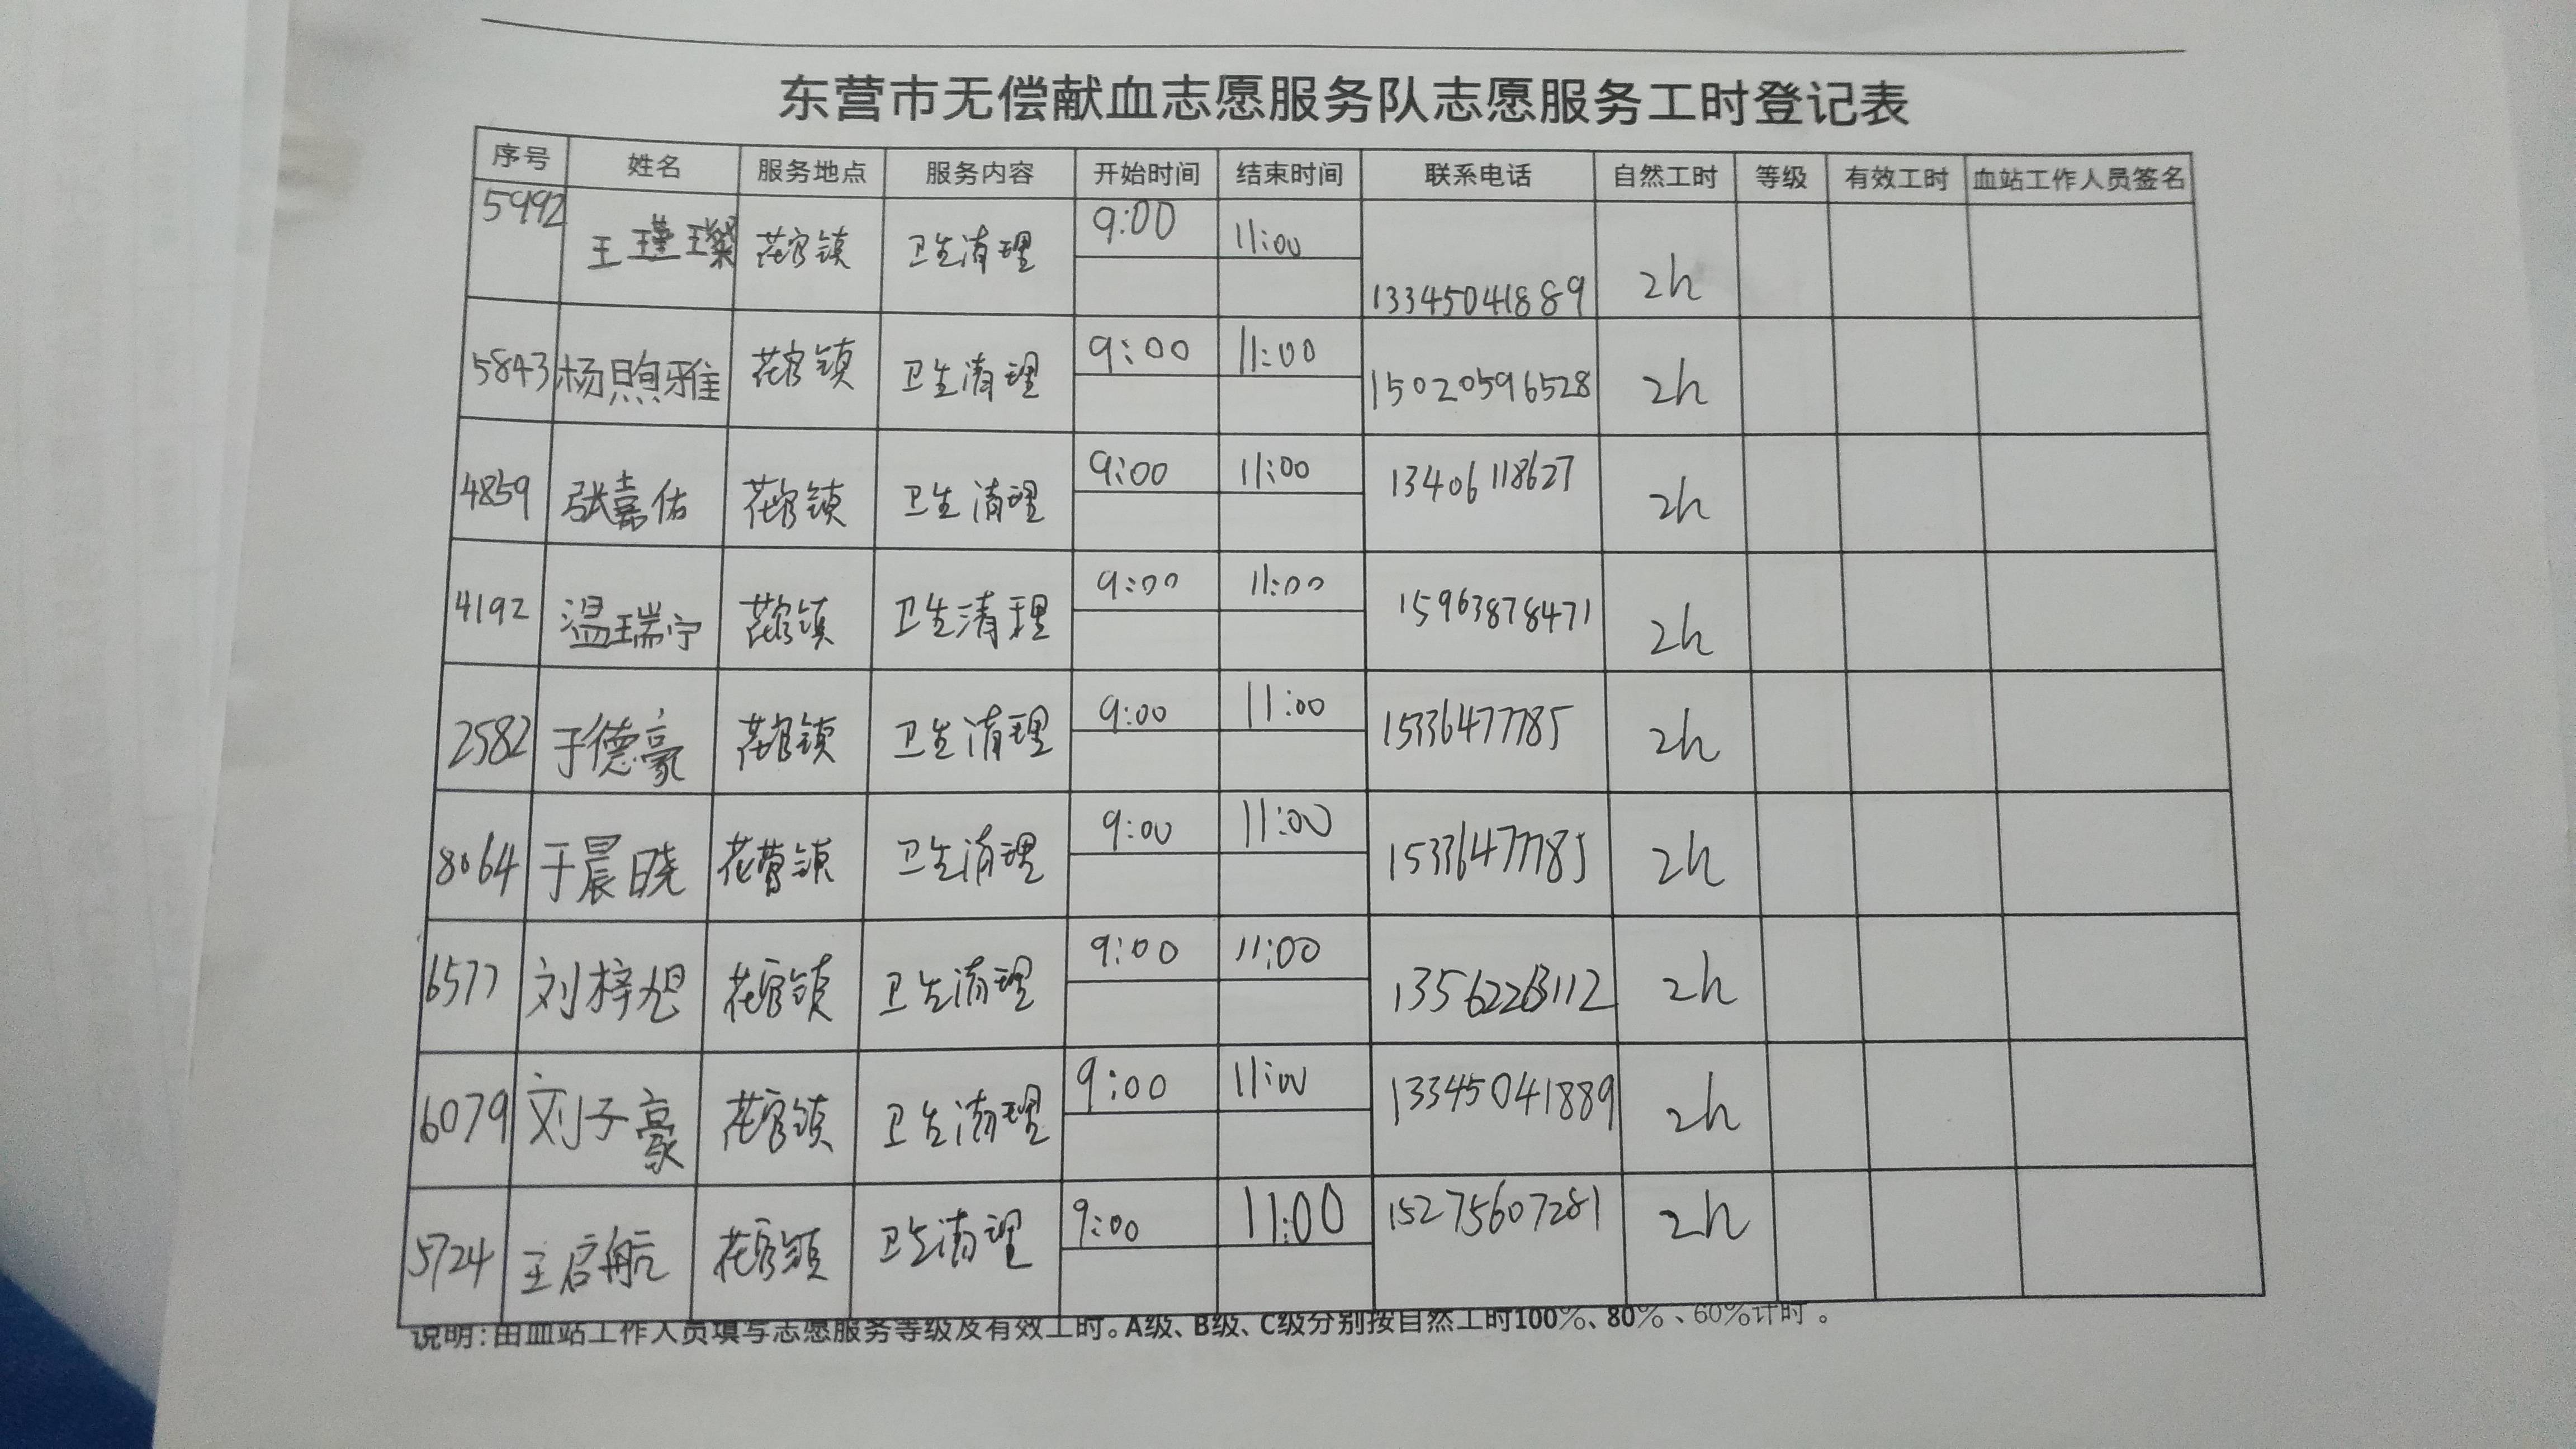 东营市无偿献血志愿服务队志愿服务工时登记表
序号 姓名 服务地点 服务内容 开始时间 结束时间 联系电话 自然工时 等级 有效工时 血站工作人员签名
5992 王瑾璨 花官镇 卫生清理 9:00 11:00 13345041889 2h
5843 杨煦雅 花官镇 卫生清理 9:00 11:00 15020596528 2h
4859 张嘉佑 花官镇 卫生清理 9:00 11:00 13406118627 2h
4192 温瑞宁 花官镇 卫生清理 9:00 11:00 15963878471 2h
2582 于德豪 花官镇 卫生清理 9:00 11:00 15336477785 2h
8064 于晨晓 花营镇 卫生清理 9:00 11:00 15336477785 2h
6577 刘梓旭 花官镇 卫生清理 9:00 11:00 2h
6079 刘子豪 花官镇 卫生清理 9:00 11:00 13345041889 2h
5724 王启航 花官镇 卫生清理 9:00 11:00 15275607281 2h
说明:由血站工作人员填写志愿服务等级及有效工时。A级、B级、C级分别按自然工时100%、80%、60%计时。